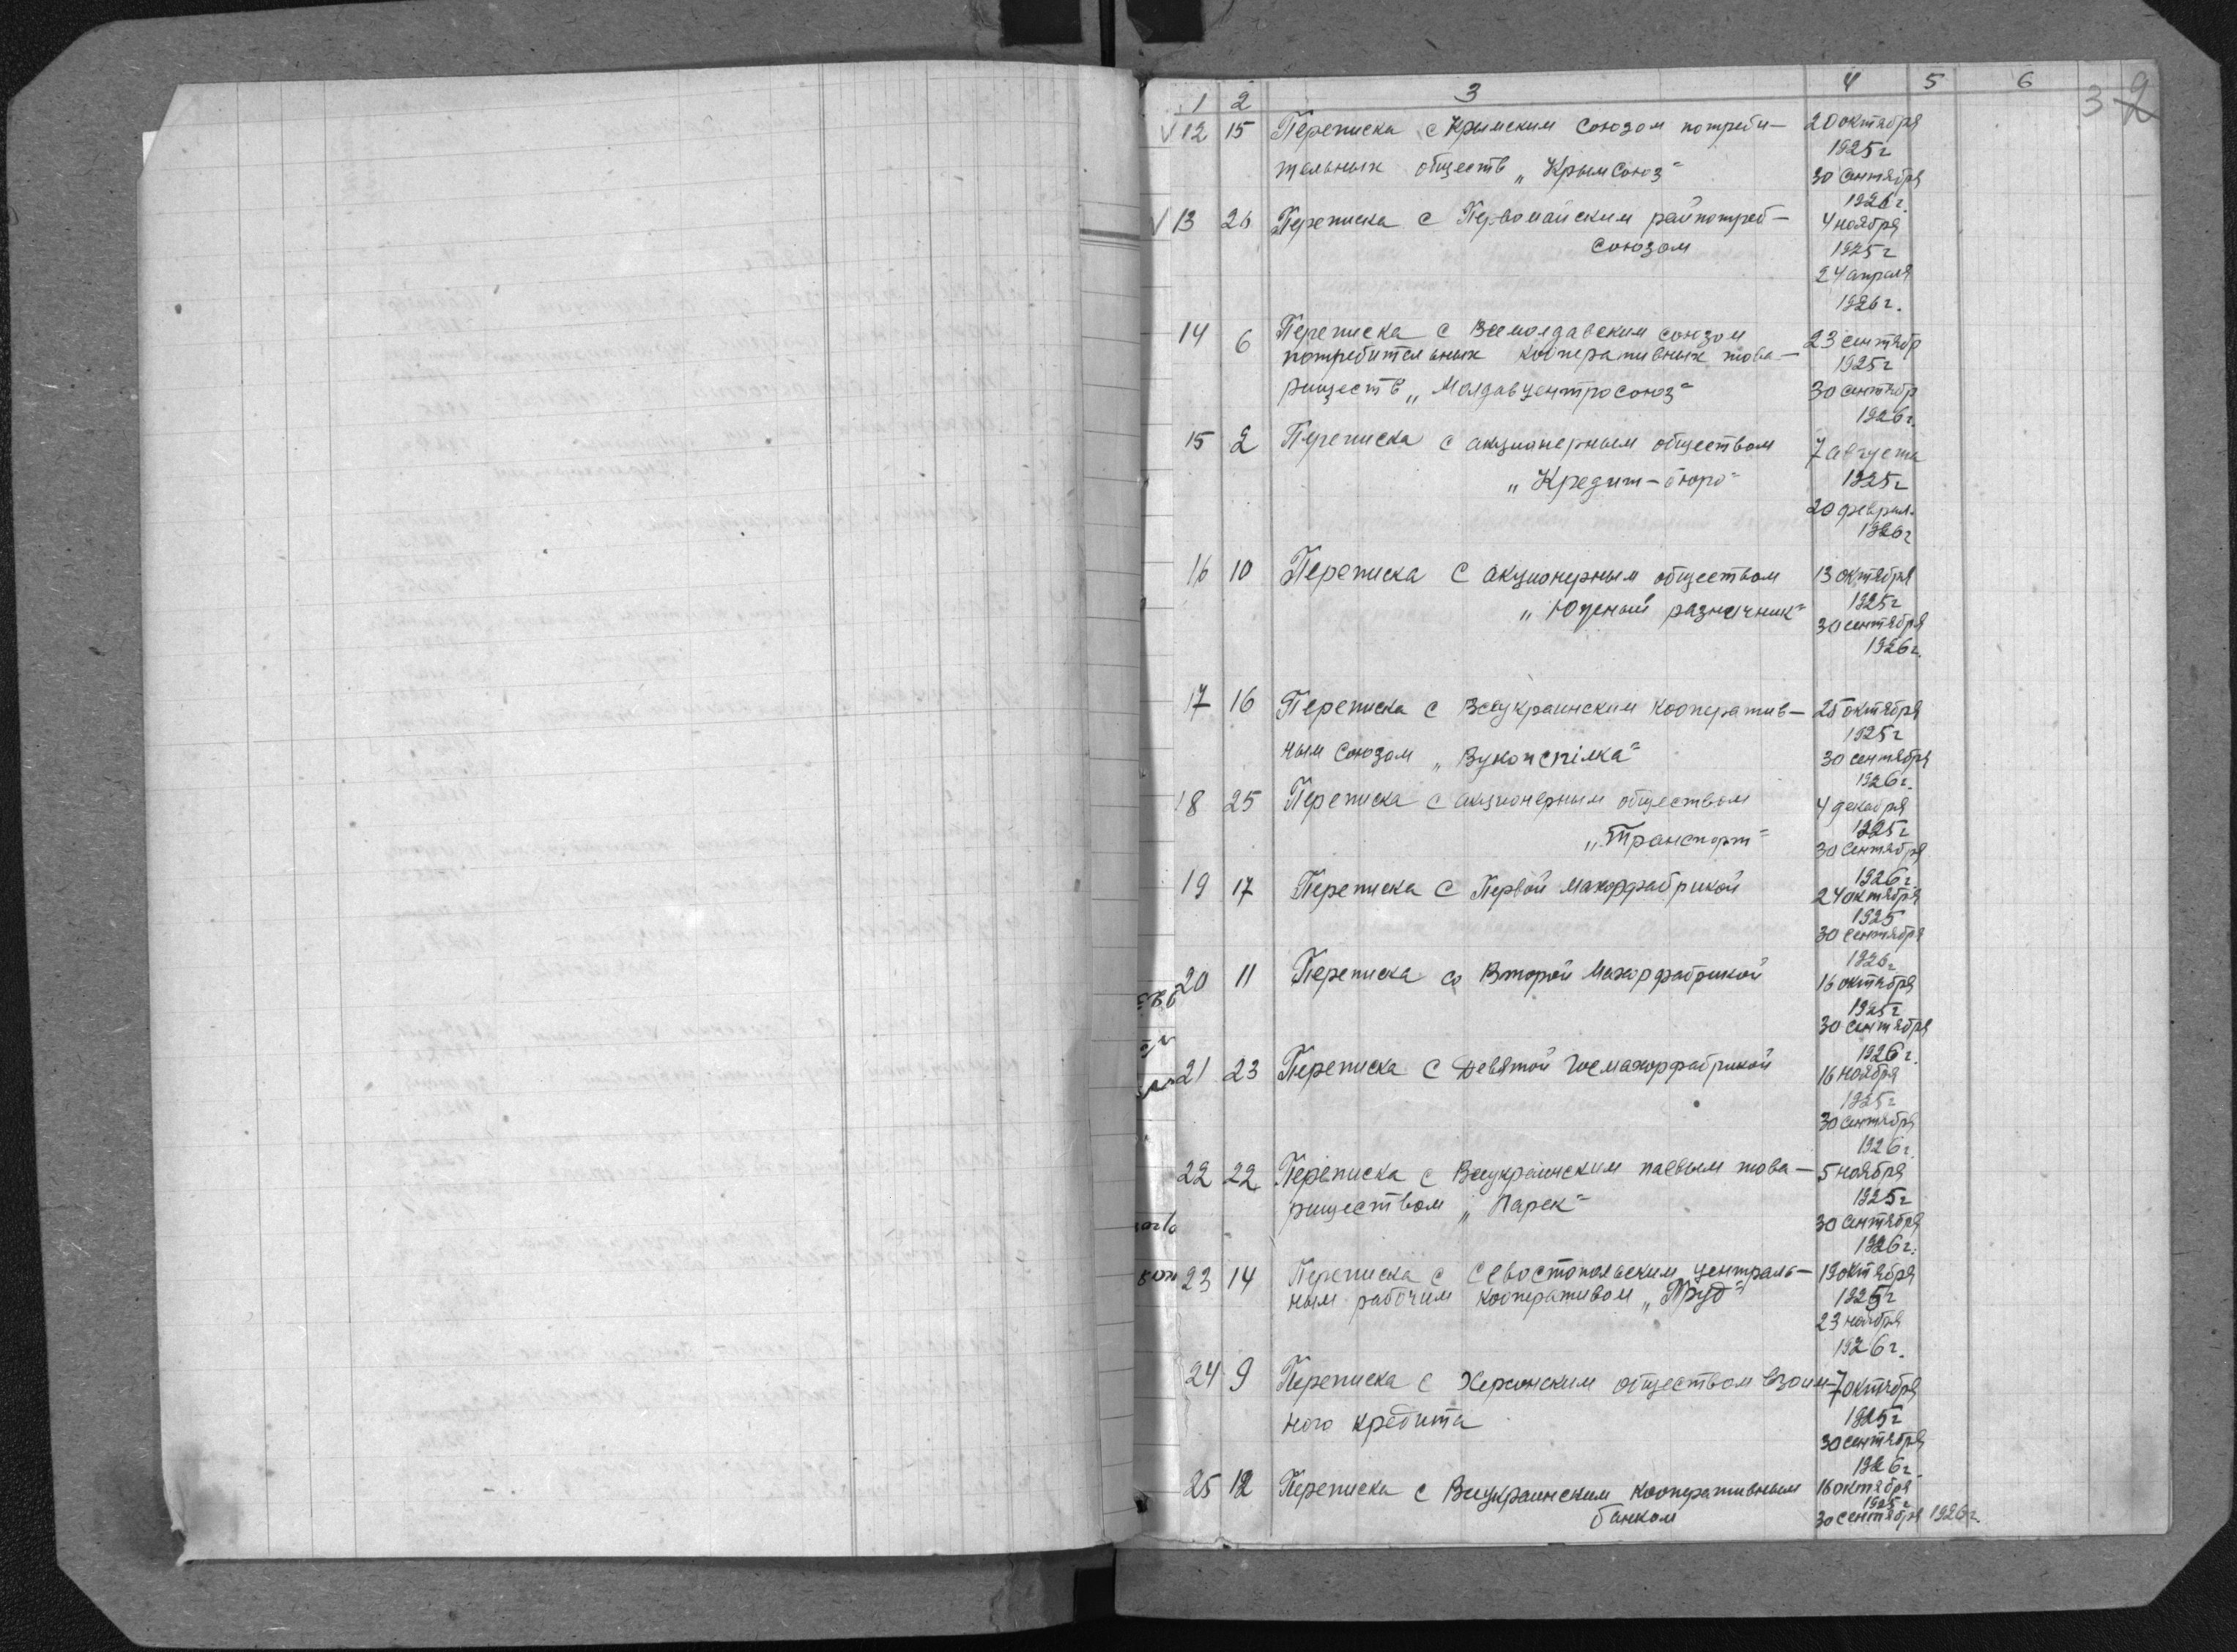 1 2 3 4 5 6
3 2
V 12 15 Переписка с Крымским союзом потреби- 20 октября
1925 г
тельных обществ „Крымсоюз" 30 сентября
1926 г.
V 13 26 Переписка с Первомайским райпотреб- 4 ноября
союзом 1925 г
24 апреля
1926 г.
14 6 Переписка с Всемолдавским союзом 23 сентябр
потребительных кооперативных това- 1925 г
риществ „Молдавцентросоюз" 30 сентябр
1926 г.
15 2 Переписка с акционерным обществом 7 августа
„Кредит-бюро" 1925 г
20 феврал.
1926 г
16 10 Переписка с акционерным обществом 13 октября
„Южный розничник" 1925 г
30 сентября
1926 г.
17 16 Переписка с Всеукраинским кооператив- 25 октября
1925 г
ным союзом „Вукопспілка" 30 сентября
1926 г.
18 25 Переписка с акционерным обществом 4 декабря
„Транспорт" 1925 г
30 сентября
1926 г.
19 17 Переписка с Первой махорфабрикой 24 октября
1925
30 сентября
1926 г
20 11 Переписка со Второй Махорфабрикой 16 октября
1925 г
30 сентября
1926 г.
21 23 Переписка с Девятой Госмахорфабрикой 16 ноября
1925 г
30 сентября
1926 г.
22 22 Переписка с Всеукраинским паевым това- 5 ноября
риществом „Ларек" 1925 г
30 сентября
1926 г.
23 14 Переписка с Севостопольским централь- 19 октября
ным рабочим кооперативом „Труд" 1925 г
23 ноября
1926 г.
24 9 Переписка с Херсонским обществом взаим- 7 октября
ного кредита 1925 г
30 сентября
1926 г.
25 12 Переписка с Всеукраинским кооперативным 16 октября
1925 г
банком 30 сентября 1926 г.